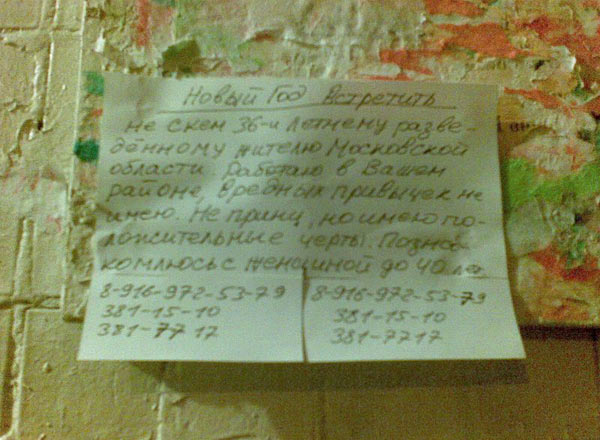 Новый Год Встретить
не скем 36-и летнему разве-
дённому жителю Московской
области. Работаю в Вашем
районе, вредных привычек не
имею. Не принц, но имею по-
ложительные черты. Позна-
комлюсь с женщиной до 40 ле
8-916-972-53-79 8-916-972-53-79
381-15-10 381-15-10
381-77 17 381-7717